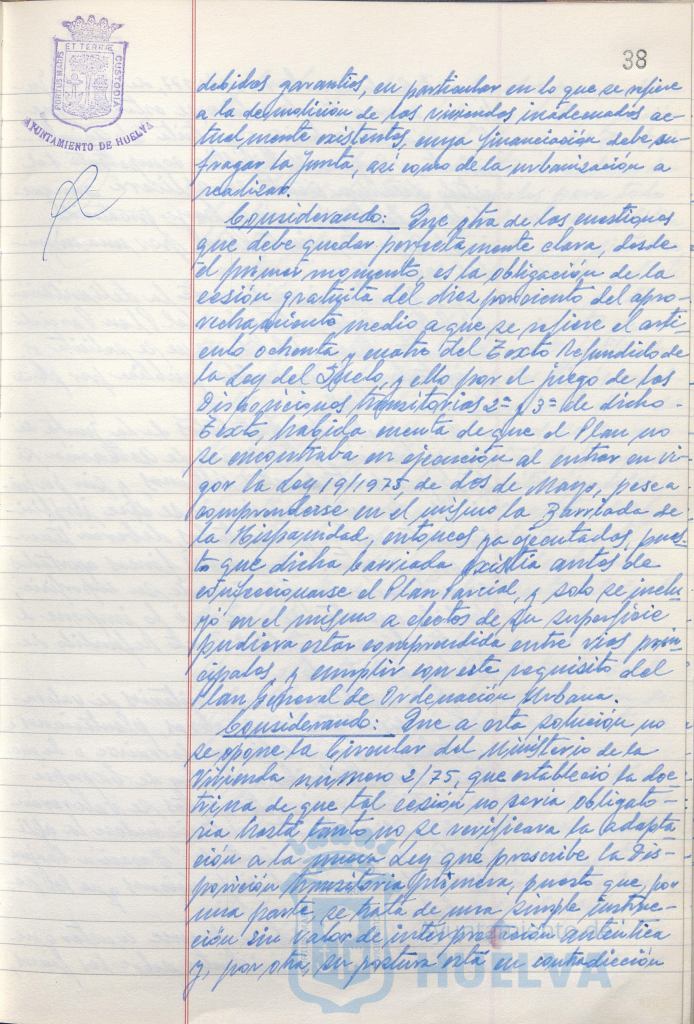 38
PORTUS MARIS ET TERRAE CUSTODIA
AYUNTAMIENTO DE HUELVA
debidas garantías, en particular en lo que se refiere
a la demolición de las viviendas inadecuadas ac-
tualmente existentes, cuya financiación debe su-
fragar la Junta, así como de la urbanización a
realizar.
Considerando: Que otra de las cuestiones
que debe quedar perfectamente clara, desde
el primer momento, es la obligación de la
cesión gratuita del diez por ciento del apro-
vechamiento medio a que se refiere el artí-
culo ochenta y cuatro del Texto Refundido de
la Ley del Suelo, y ello por el juego de las
Disposiciones Transitorias 2ª y 3ª de dicho
Texto, habida cuenta de que el Plan no
se encontraba en ejecución al entrar en vi-
gor la Ley 19/1975, de dos de Mayo, pese a
comprenderse en el mismo la Barriada de
la Hispanidad, entonces ya ejecutada, pues-
to que dicha barriada existía antes de
confeccionarse el Plan Parcial, y solo se inclu-
yó en el mismo a efectos de su superficie
pudiera estar comprendida entre vías prin-
cipales, y cumplir con este requisito del
Plan General de Ordenación Urbana.
Considerando: Que a esta solución no
se opone la Circular del Ministerio de la
Vivienda número 2/75, que estableció la doc-
trina de que tal cesión no sería obligato-
ria hasta tanto no se verificara la adapta
ción a la nueva Ley que prescribe la Dis-
posición Transitoria Primera, puesto que, por
una parte, se trata de una simple instruc-
ción sin valor de interpretación auténtica
y, por otra, su postura está en contradicción
Ayuntamiento de
HUELVA